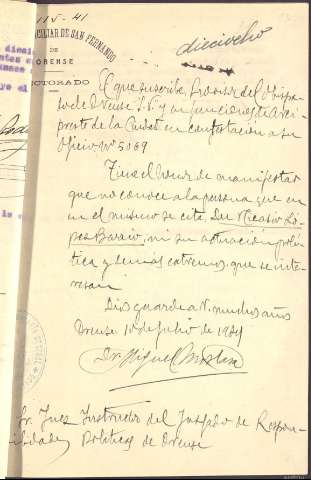 115-41
CILIAR DE SAN FERNANDO
DE
ORENSE
CTORADO
dieciocho
El que suscribe Provisor del Obispa
do de Orense S. V. y en funciones de Arci
preste de la Ciudad en contestación a su
Oficio Nº 5069
Tiene el honor de manifestar
que no conoce a la persona que en
en el mismo se cita, Don Nicasio Ló
pez, ni su actuación polí
tica y demás extremos que se inte
resan
Dios guarde a V. muchos años
Orense 1º de Julio de 1941
Dr. Miguel
Sr. Juez Instructor del Juzgado de Respon
sabilidades Políticas de Orense